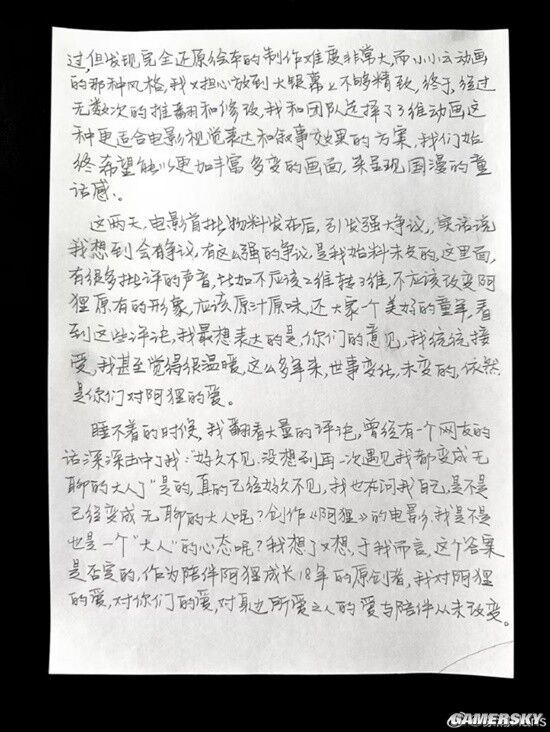 过,但发现完全还原绘本的制作难度非常大,而小小云动画
的那种风格,我又担心放到大银幕上不够精致,终于,经过
无数次的推翻和修改,我和团队选择了3维动画这
种更适合电影视觉表达和叙事效果的方案,我们始
终希望能以更加丰富多变的画面,来呈现国漫的童
话感。
这两天,电影首批物料发布后,引发强大争议,实话说
我想到会有争议,有这么强的争议是我始料未及的,这里面,
有很多批评的声音,比如不应该2维转3维,不应该改变阿
狸原有的形象,应该原汁原味,还大家一个美好的童年,看
到这些评论,我最想表达的是,你们的意见,我统统接
受,我甚至觉得很温暖,这么多年来,世事变化,未变的,依然
是你们对阿狸的爱。
睡不着的时候,我翻看大量的评论,曾经有一个网友的
话深深击中了我:"好久不见,没想到再一次遇见我都变成无
聊的大人了"是的,真的已经好久不见,我也在问我自己,是不是
已经变成无聊的大人呢?创作《阿狸》的电影,我是不是
也是一个"大人"的心态呢?我想了又想,于我而言,这个答案
是否定的,作为陪伴阿狸成长18年的原创者,我对阿狸
的爱,对你们的爱,对身边所爱之人的爱与陪伴从未改变。
GAMERSKY